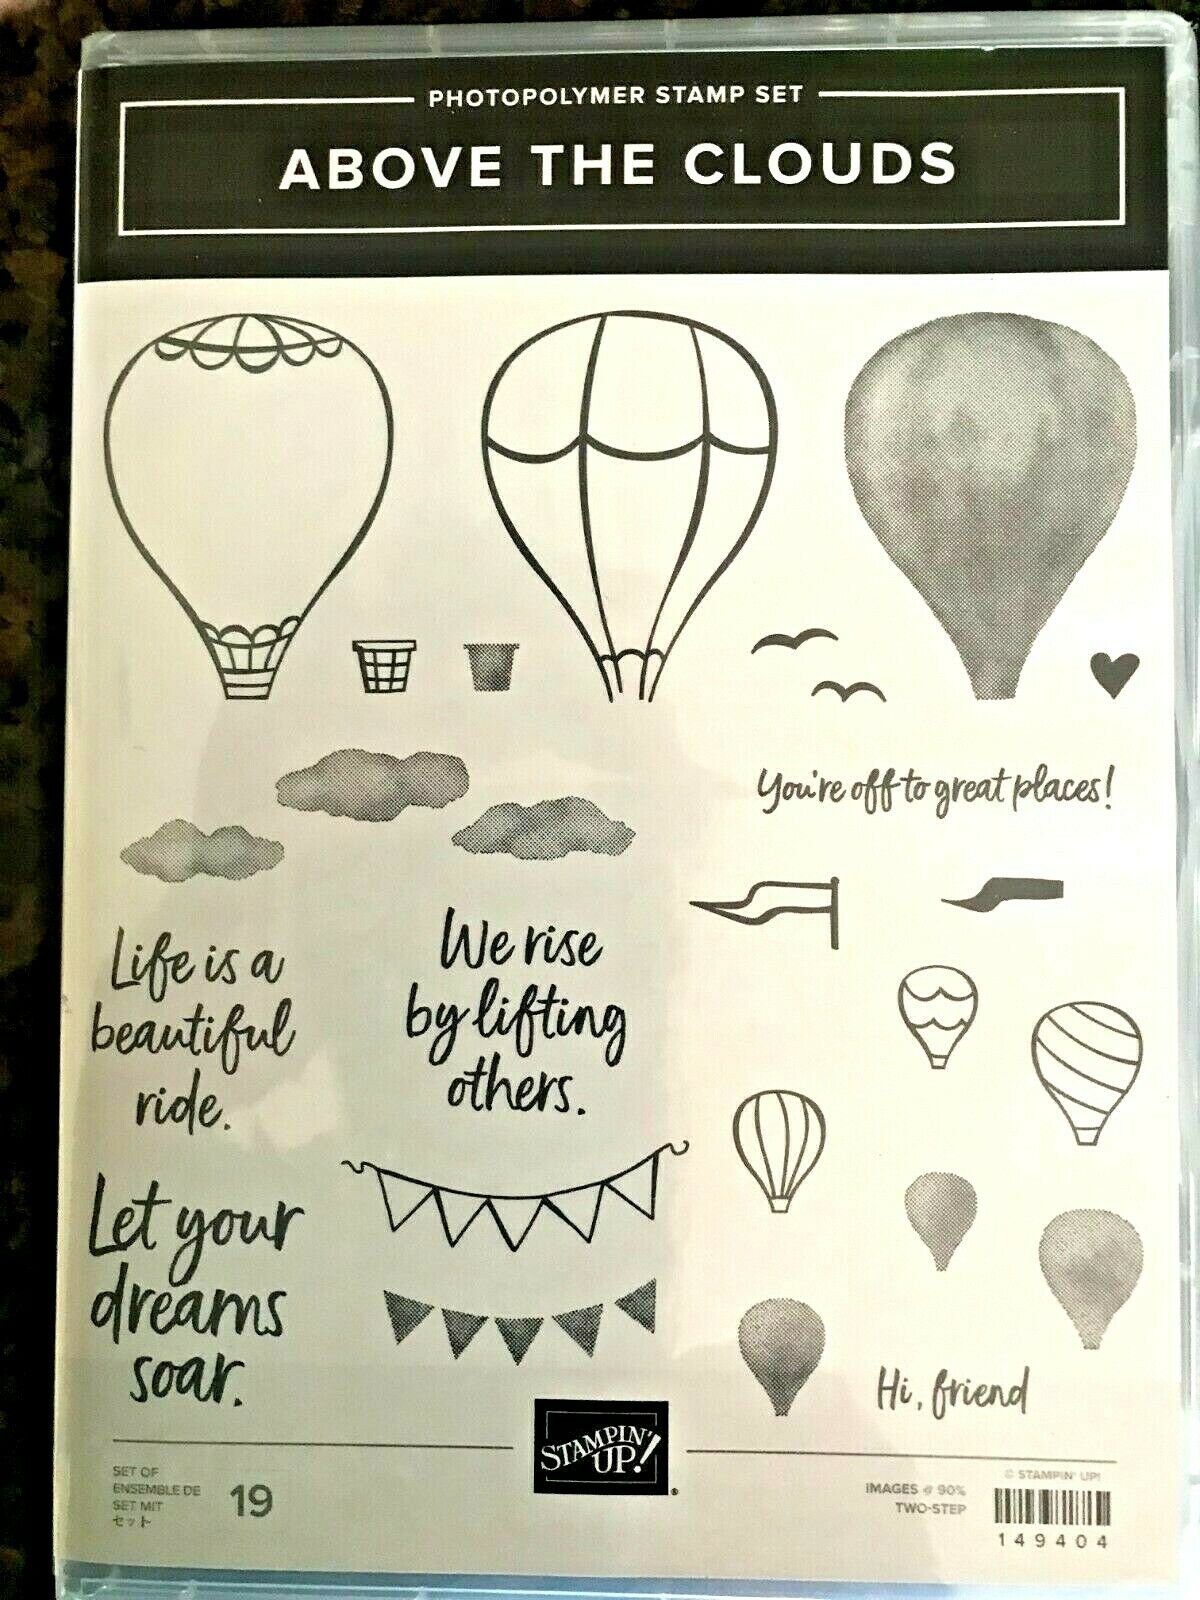 PHOTOPOLYMER STAMP SET
ABOVE THE CLOUDS
You're off to great places!
Life is a
beautiful
ride.
We rise
by lifting
others.
Let your
dreams
soar.
Hi, friend
STAMPIN'
UP!
®
SET OF
ENSEMBLE DE
SET MIT
セット
19
IMAGES @ 90%
TWO-STEP
© STAMPIN' UP!
149404